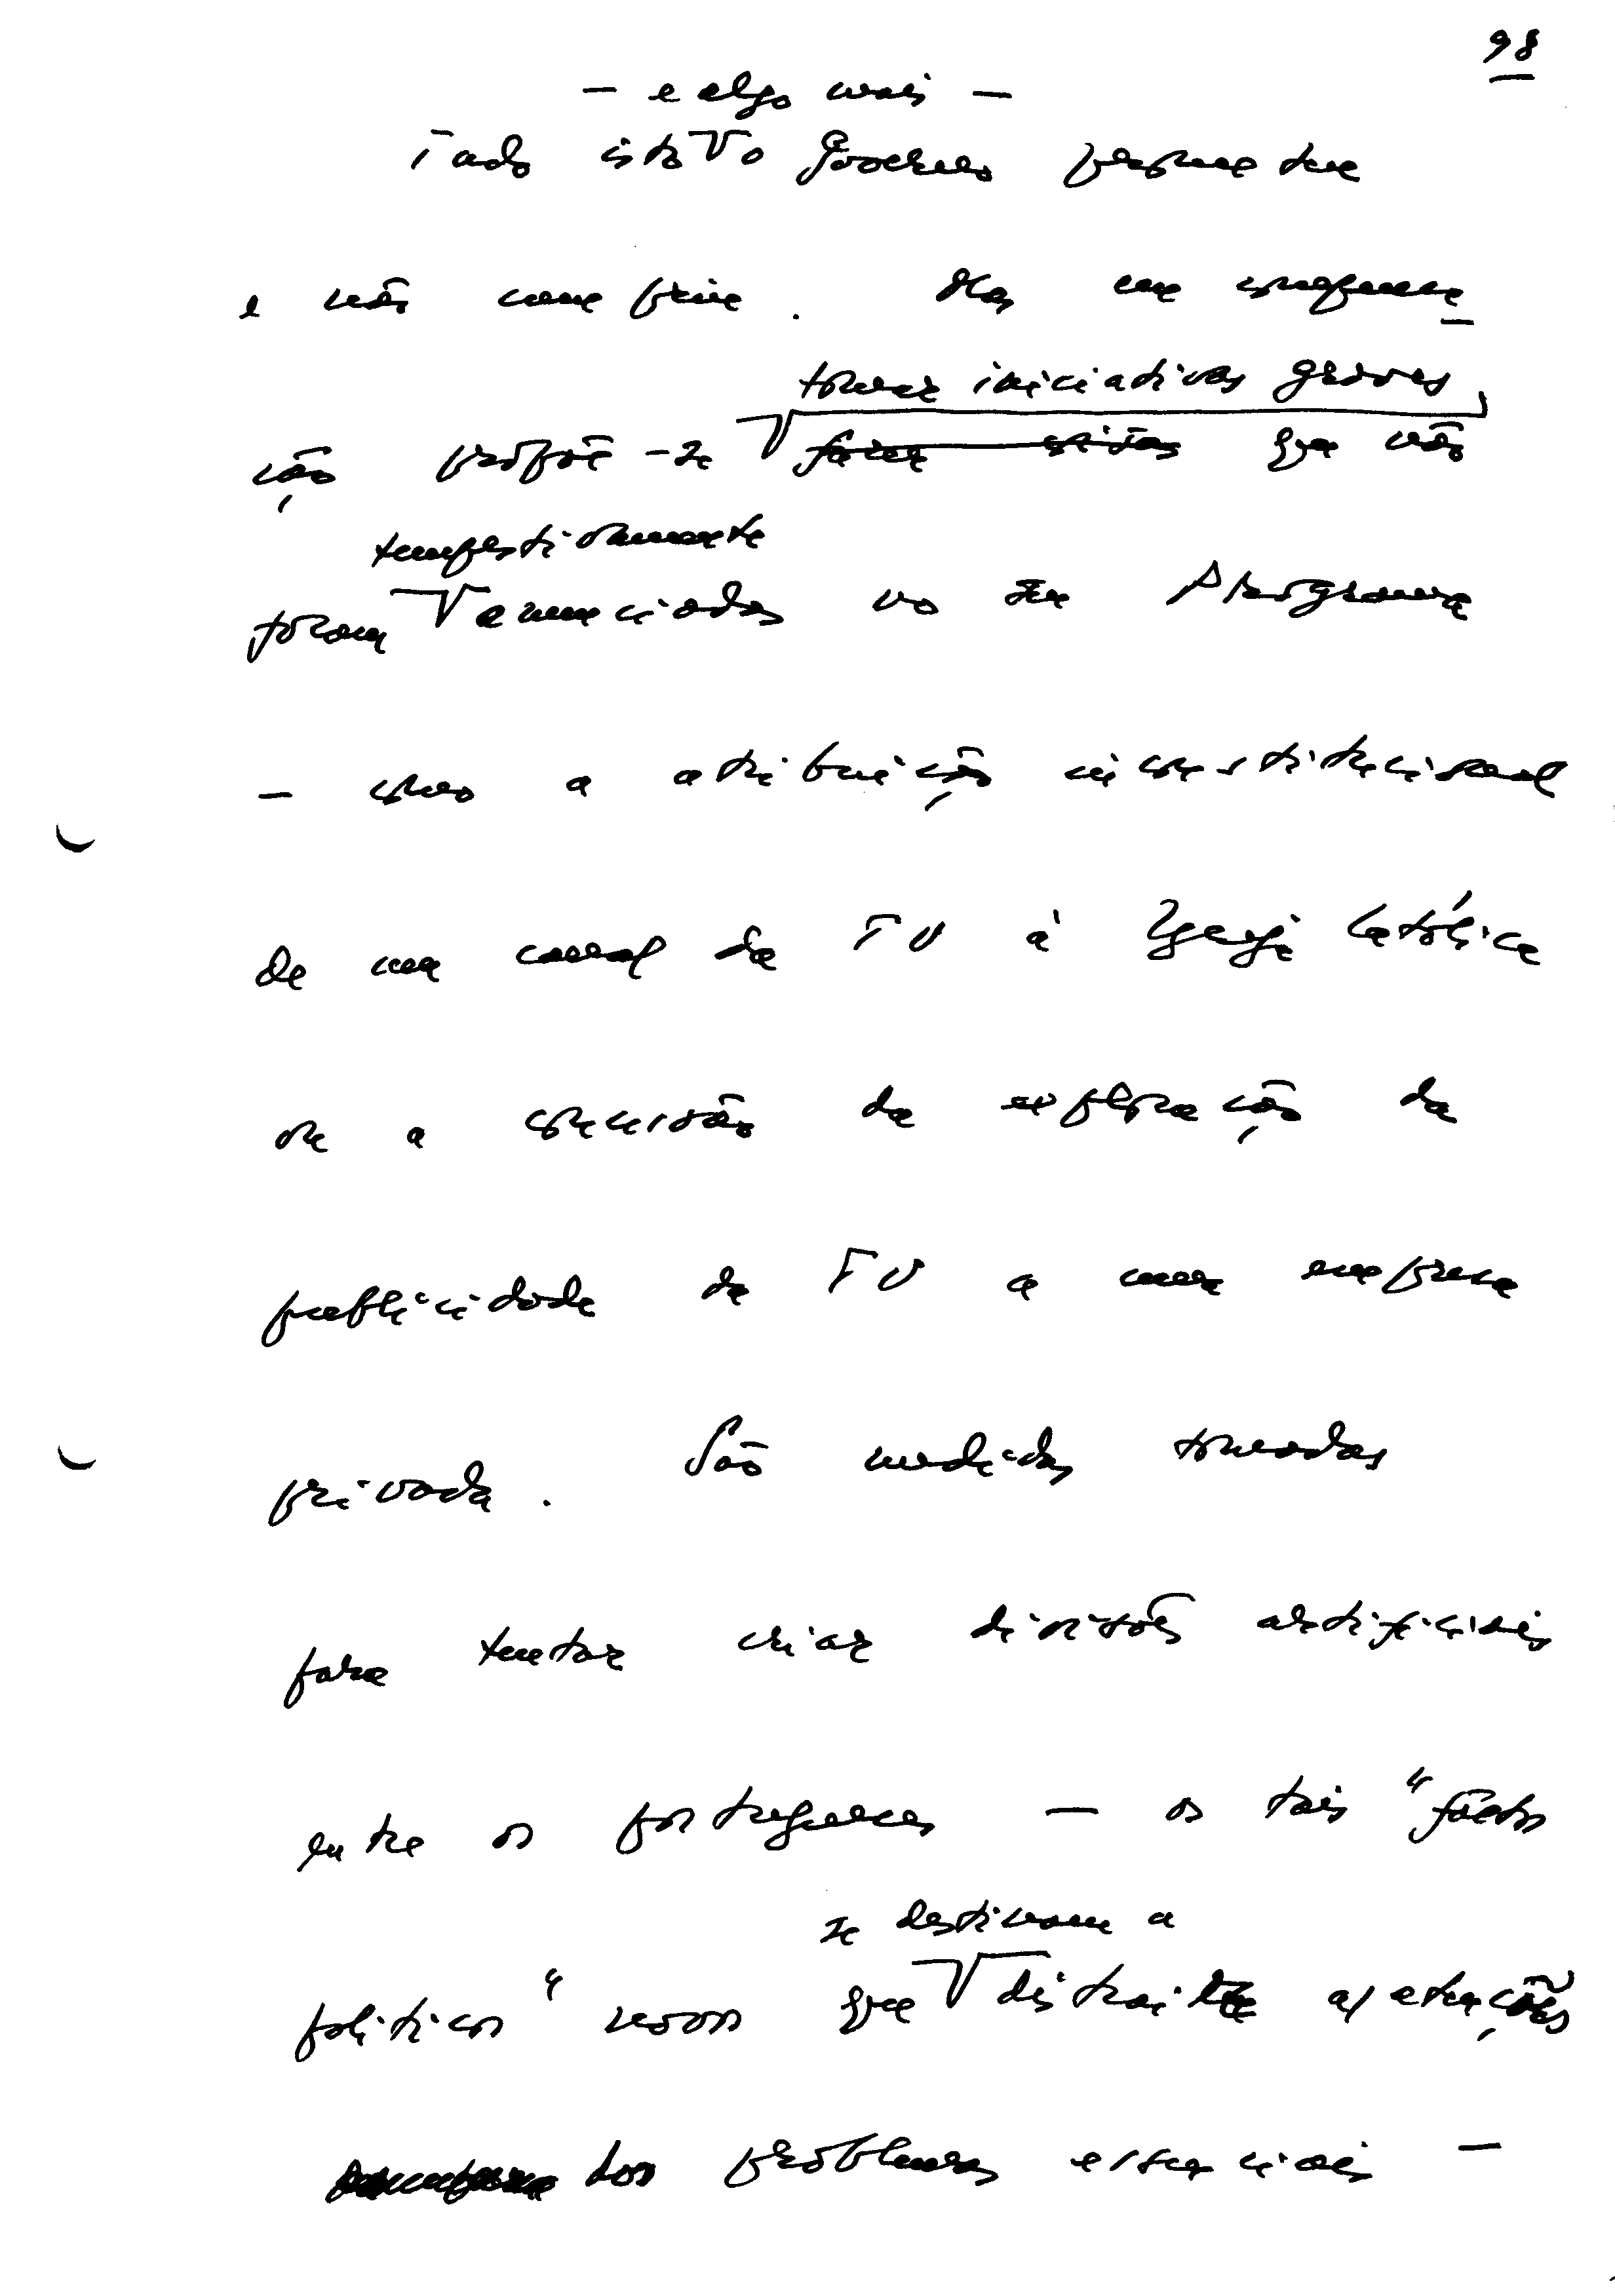 98
— e algo mais —
Tudo isto o Governo prometeu
e não cumpriu. Mas em compensa-
ção propõe-se
tomar iniciativas graves
que não
tempestivamente
foram anunciadas no seu Programa
— como a atribuição inconstitucional
de um canal da TV à Igreja Católica
ou a concessão da exploração da
publicidade da TV a uma empresa
privada. São medidas tomadas
para tentar criar divisões artificiais
entre os portugueses — os tais "factos
se destinam a
políticos" novos que distrair as atenções
dos problemas essenciais —